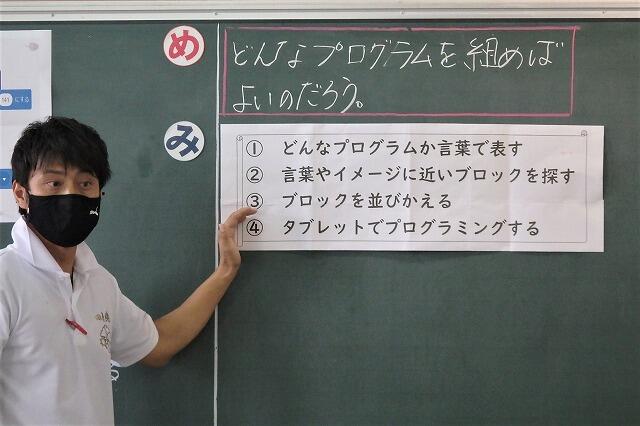 141 にする
め
どんなプログラムを組めば
よいのだろう。
み
① どんなプログラムか言葉で表す
② 言葉やイメージに近いブロックを探す
③ ブロックを並びかえる
④ タブレットでプログラミングする